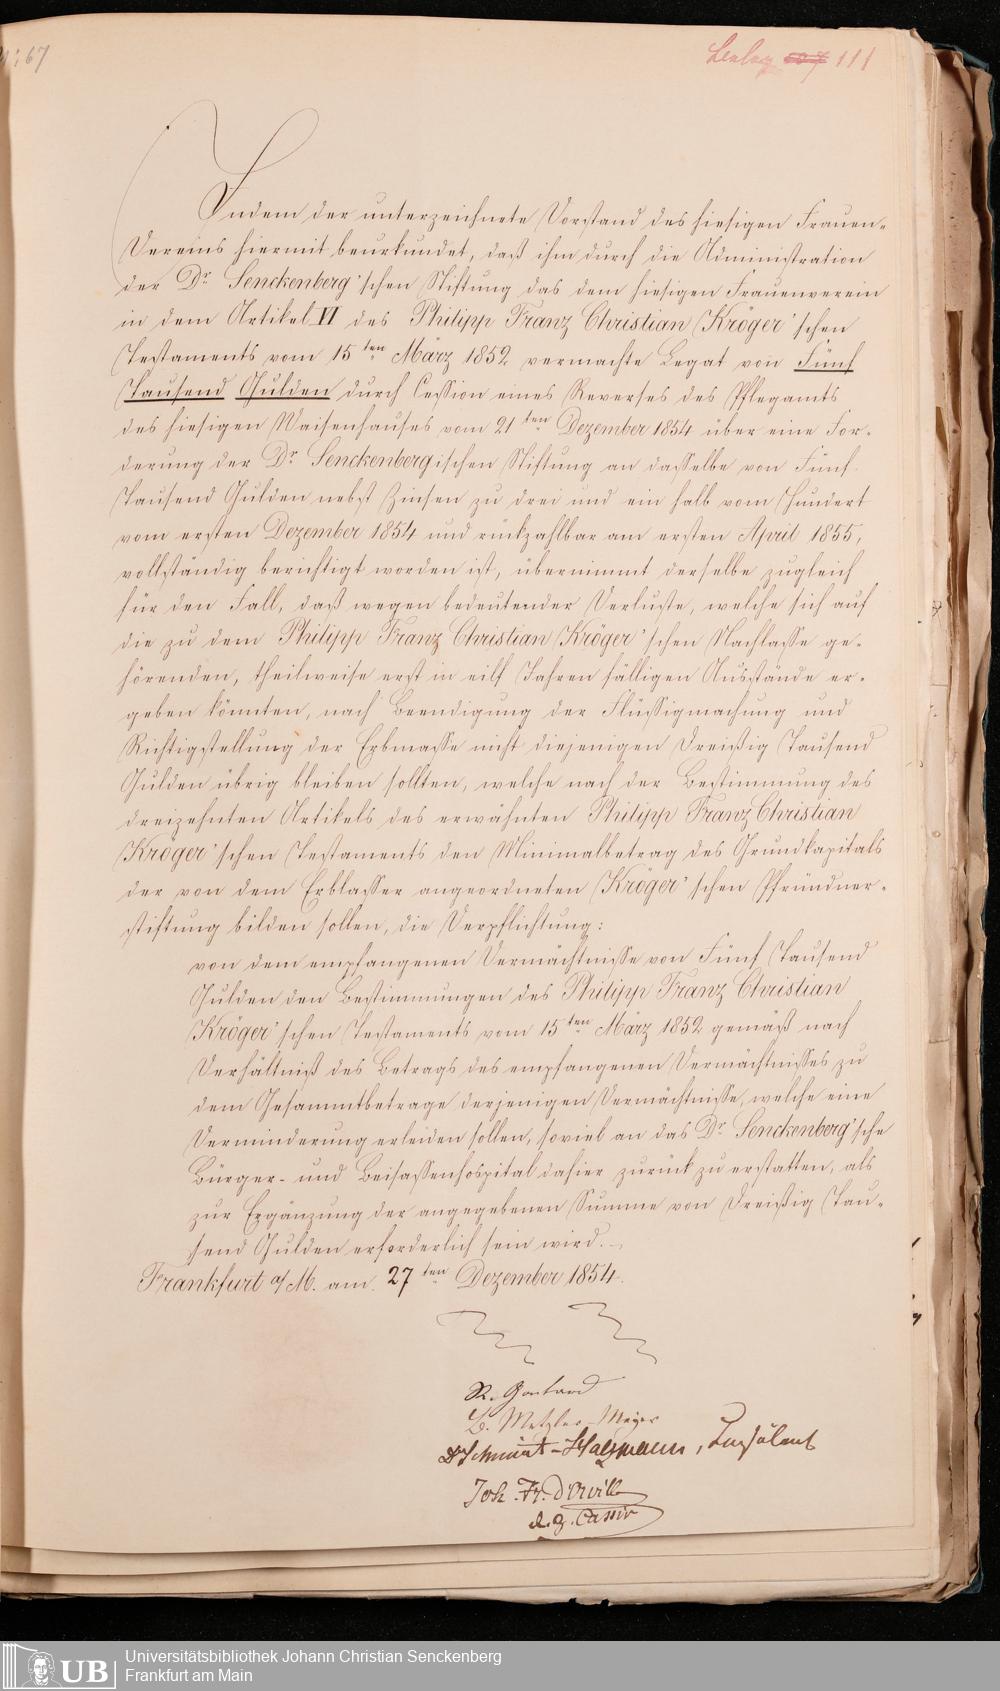 67
Beilag 111
Indem der unterzeichnete Vorstand des hiesigen Frauen-
Vereins hiermit beurkundet, daß ihm durch die Administration
der Dr. Senckenberg'schen Stiftung das dem hiesigen Frauenverein
in dem Artikel VI des Philipp Franz Christian Kröger'schen
Testaments vom 15ten März 1852 vermachte Legat von Fünf
Tausend Gulden durch Cession eines Reverses des Pflegamts
des hiesigen Waisenhauses vom 21ten Dezember 1854 über eine For-
derung der Dr. Senckenbergischen Stiftung an dasselbe von Fünf
Tausend Gulden nebst Zinsen zu drei und ein halb vom Hundert
vom ersten Dezember 1854 und rückzahlbar am ersten April 1855,
vollständig berichtigt worden ist, übernimmt derselbe zugleich
für den Fall, daß wegen bedeutender Verluste, welche sich auf
die zu dem Philipp Franz Christian Kröger'schen Nachlasse ge-
hörenden, theilweise erst in eilf Jahren fälligen Ausstände er-
geben könnten, nach Beendigung der Flüssigmachung und
Richtigstellung der Erbmasse nicht diejenigen Dreißig Tausend
Gulden übrig bleiben sollten, welche nach der Bestimmung des
dreizehnten Artikels des erwähnten Philipp Franz Christian
Kröger'schen Testaments den Minimalbetrag des Grundkapitals
der von dem Erblasser angeordneten Kröger'schen Pfründner-
stiftung bilden sollen, die Verpflichtung:
von dem empfangenen Vermächtnisse von Fünf Tausend
Gulden den Bestimmungen des Philipp Franz Christian
Kröger'schen Testaments vom 15ten März 1852 gemäß nach
Verhältniß des Betrags des empfangenen Vermächtnisses zu
dem Gesammtbetrage derjenigen Vermächtnisse, welche eine
Verminderung erleiden sollen, soviel an das Dr. Senckenberg'sche
Bürger- und Beisassenhospital dahier zurück zu erstatten, als
zur Ergänzung der angegebenen Summe von Dreißig Tau-
send Gulden erforderlich sein wird.
Frankfurt a/M. am 27ten Dezember 1854.
R. Gontard
B. Metzler-Meyer
Dr Schmidt-Holzmann, Consulent
Joh. Fr. D'Orville
Universitätsbibliothek Johann Christian Senckenberg
Frankfurt am Main
UB